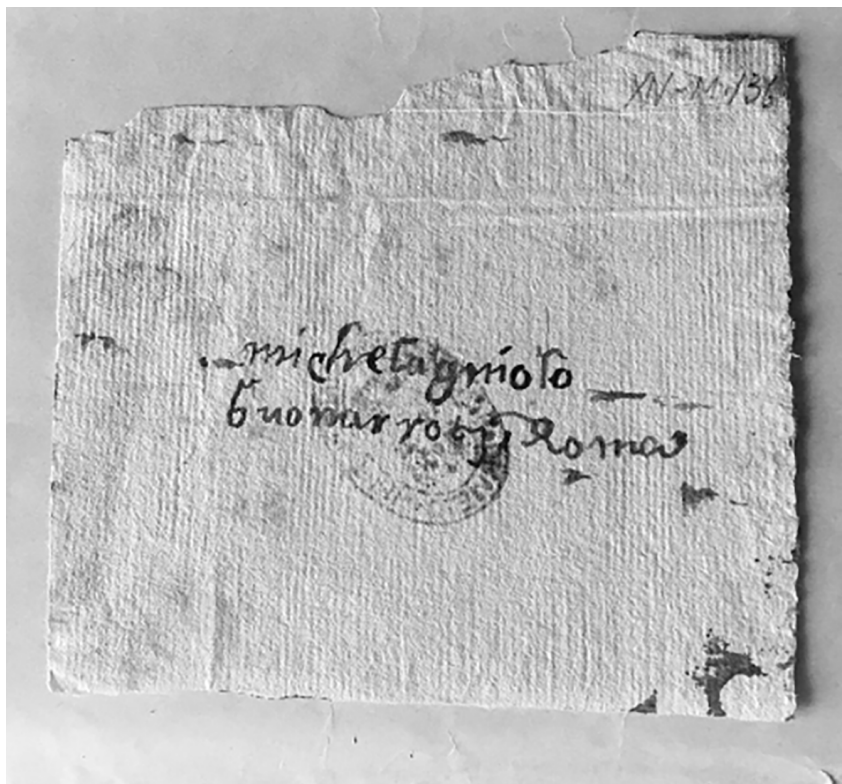 XV-M-136
michelagniolo
buonarroty Roma